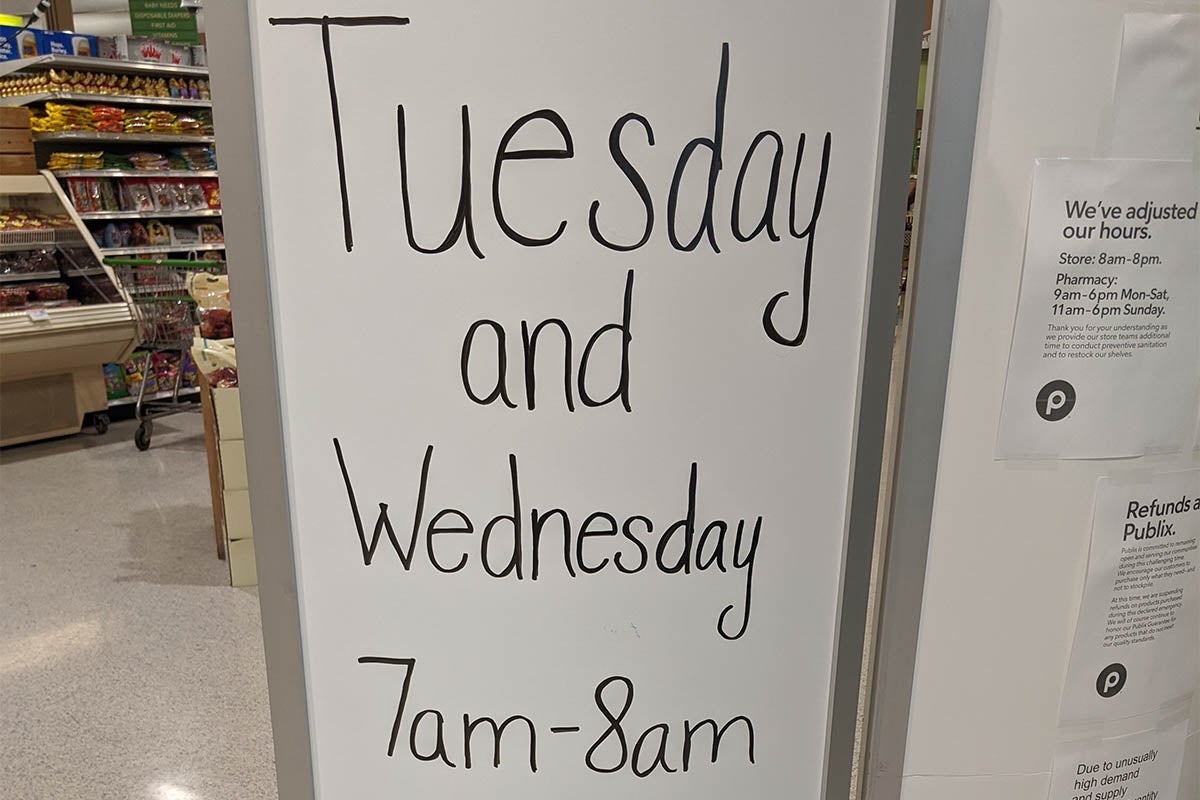 BABY NEEDS
DISPOSABLE DIAPERS
FIRST AID
VITAMINS
Tuesday
and
Wednesday
7am-8am
We've adjusted
our hours.
Store: 8am-8pm.
Pharmacy:
9am-6pm Mon-Sat,
11am-6pm Sunday.
Thank you for your understanding as
we provide our store teams additional
time to conduct preventive sanitation
and to restock our shelves.
P
Refunds a
Publix.
Publix is committed to remaining
open and serving our communities
during this challenging time.
We encourage our customers to
purchase only what they need- and
not to stockpile.
At this time, we are suspending
refunds on products purchased
during this declared emergency.
We will of course continue to
honor our Publix Guarantee for
any products that do not meet
our quality standards.
P
Due to unusually
high demand
and supply